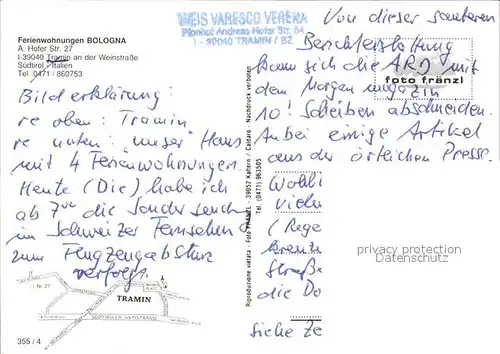 Ferienwohnungen BOLOGNA
A. Hofer Str. 27
I-39040 Tramin an der Weinstraße
Südtirol - Italien
Tel. 0471 / 860753
WEIS VARESCO VERENA
Pfarrhof Andreas Hofer Str. 54
I - 39040 TRAMIN / BZ
Bilderklärung:
re oben: Tramin
re unten: "unser" Haus
mit 4 Ferienwohnungen.
Heute (Die) habe ich
ab 7°° die Sondersendung
im Schweizer Fernsehen
zum Flugzeugabsturz
verfolgt.
Von dieser sauberen
Berichterstattung
kann sich die ARD mit
dem Morgenmagazin
10! Scheiben abschneiden.
Anbei einige Artikel
aus der örtlichen Presse.
Wohl
viel
(Rege
Straße
die Do
siehe Ze
foto fränzl
Riproduzione vietata - Foto FRÄNZL - 39052 Kaltern / Caldaro - Nachdruck verboten
Tel. (0471) 963505
privacy protection
Datenschutz
Nr. 27
TRAMIN
SÜDTIROLER WEINSTRASSE
355 / 4